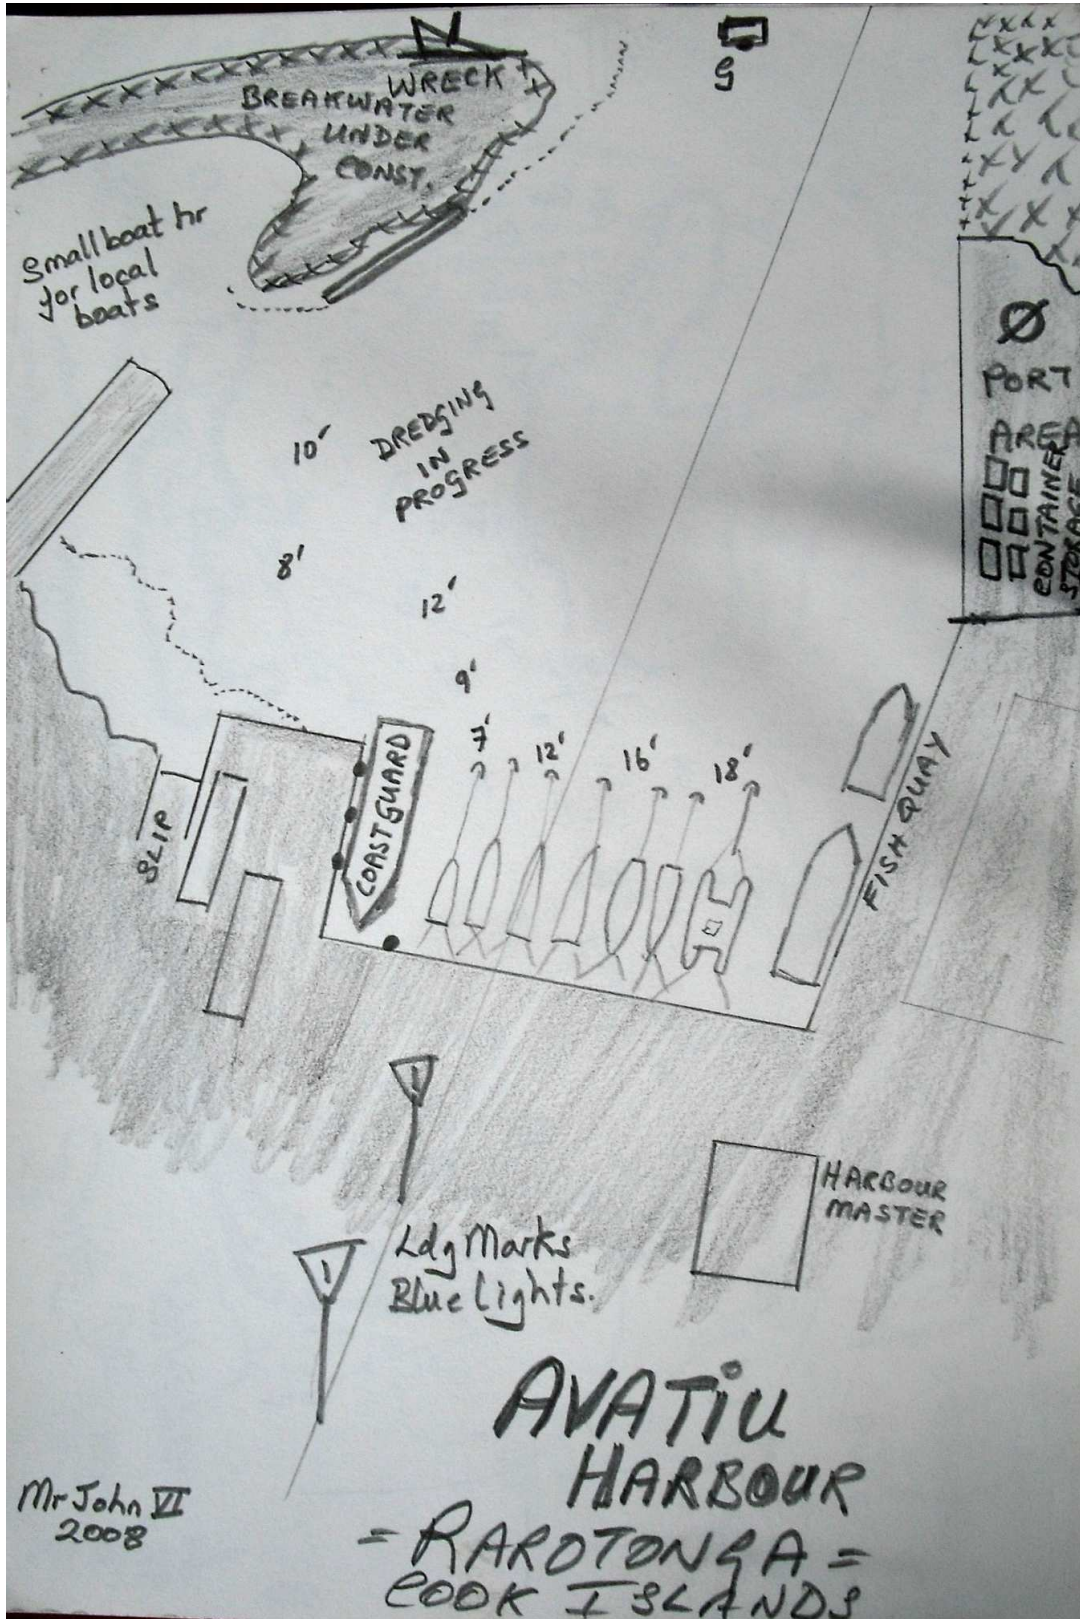 WRECK
BREAKWATER
UNDER
CONST.
G
Small boat hr
for local
boats
Ø
PORT
AREA
CONTAINER
STORAGE
10'
DREDGING
IN
PROGRESS
8'
12'
9'
7'
12'
16'
18'
COASTGUARD
SLIP
FISH QUAY
HARBOUR
MASTER
Ldg Marks
Blue Lights.
AVATiU
HARBOUR
= RAROTONGA =
COOK ISLANDS
Mr John VI
2008